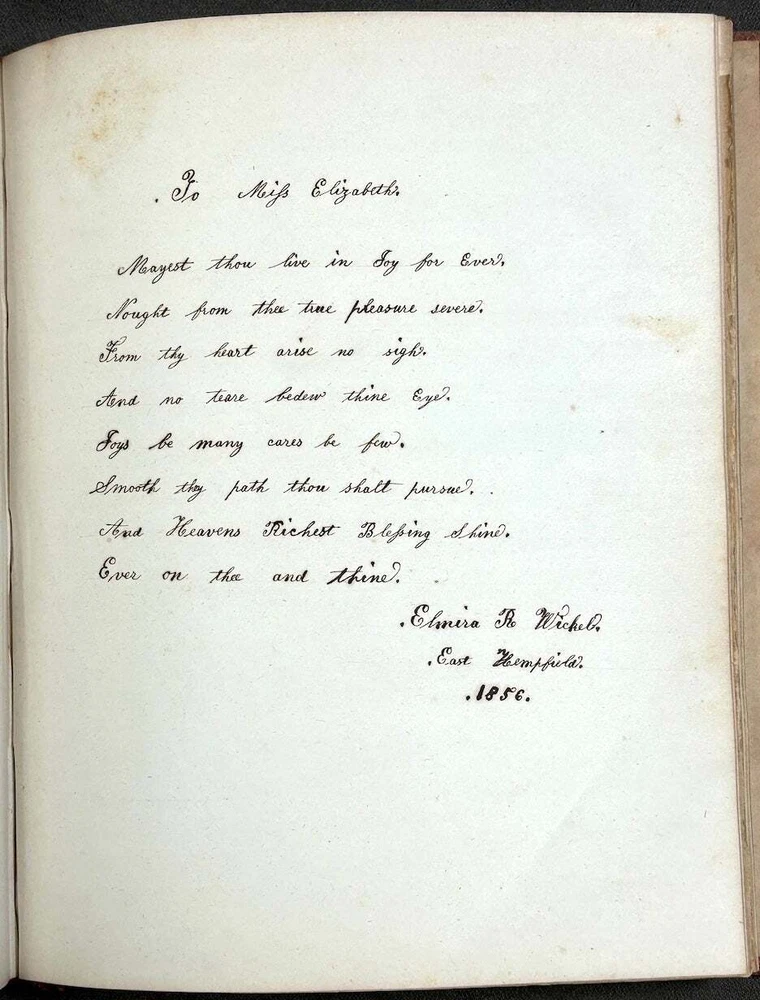 . To Miſs Elizabeth.
Mayest thou live in Joy for Ever.
Nought from thee true pleasure severe.
From thy heart arise no sigh.
And no teare bedew thine Eye.
Joys be many cares be few.
Smooth thy path thou shalt pursue. .
And Heavens Richest Bleſsing Shine.
Ever on thee and thine.
. Elmira R Wickel.
. East Hempfield.
. 1856.